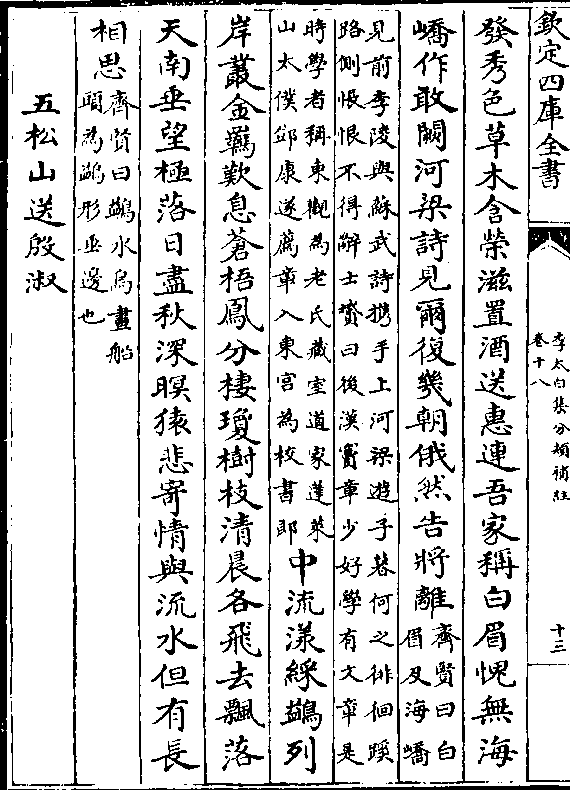 欽定四庫全書
李太白集分類補註
卷十八
十三
發秀色草木含榮滋置酒送惠連吾家稱白眉愧無海
嶠作敢闕河梁詩見爾復幾朝俄然告將離
齊賢曰白
眉及海嶠
見前李陵與蘇武詩携手上河梁遊子暮何之徘徊蹊
路側悢悢不得辭士贇曰後漢竇章少好學有文章是
時學者稱東觀為老氏藏室道家蓬萊
山太僕鄧康遂薦章入東宮為校書郎
中流漾綵鷁列
岸叢金羈歎息蒼梧鳳分棲瓊樹枝清晨各飛去飄落
天南垂望極落日盡秋深暝猿悲寄情與流水但有長
相思
齊賢曰鷁水鳥畫船
頭為鷁形垂邊也
五松山送殷淑